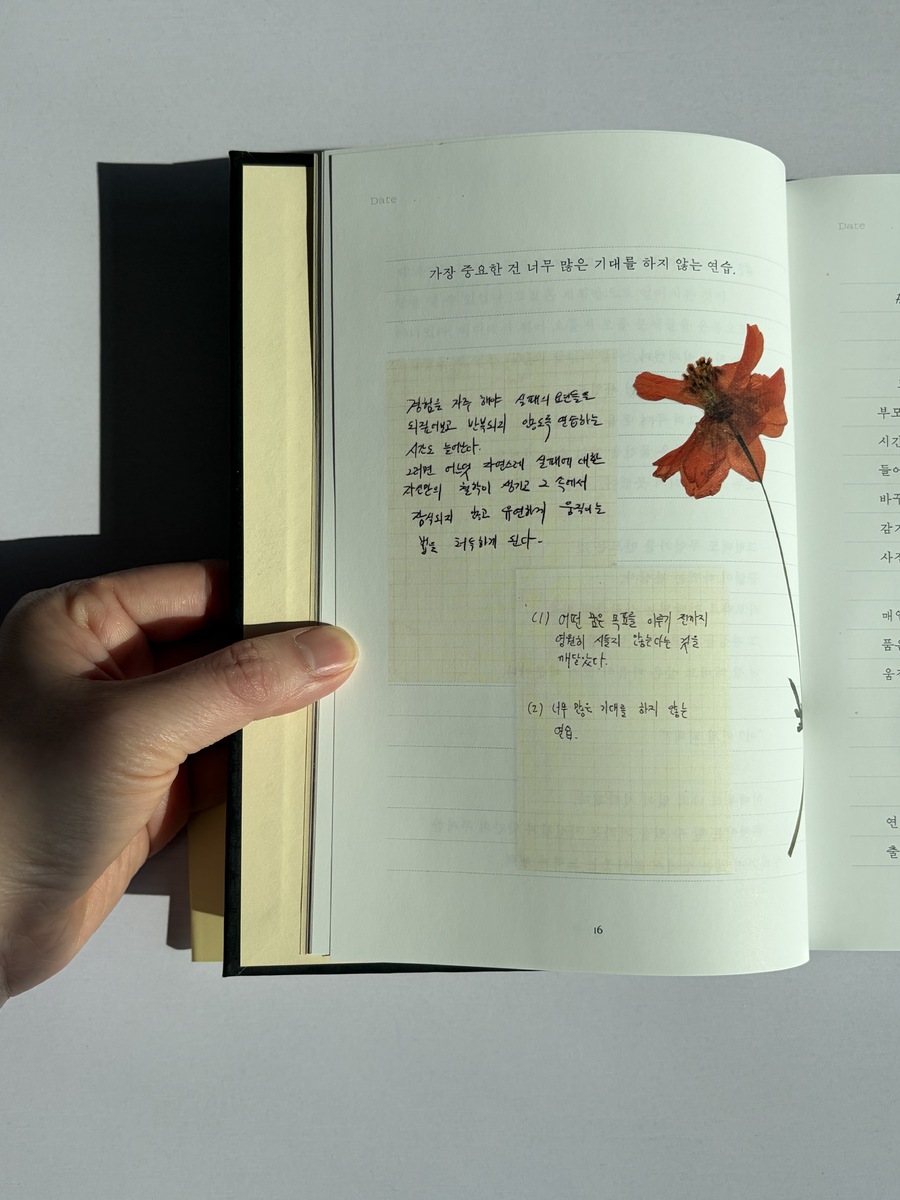 Date
가장 중요한 건 너무 많은 기대를 하지 않는 연습.
경험을 자주 해야 실패의 요인들을
되짚어보고 반복되지 않도록 연습하는
시간도 늘어난다.
그러면 어느덧 자연스레 실패에 대한
자신만의 철학이 생기고 그 속에서
잠식되지 않고 유연하게 움직이는
법을 터득하게 된다.
(1) 어떤 꿈은 목표를 이루기 전까지
영원히 시들지 않는다는 것을
깨달았다.
(2) 너무 많은 기대를 하지 않는
연습.
16
Date
부모
시간
들어
바꾸
감기
사진
매일
품은
움직
연
출